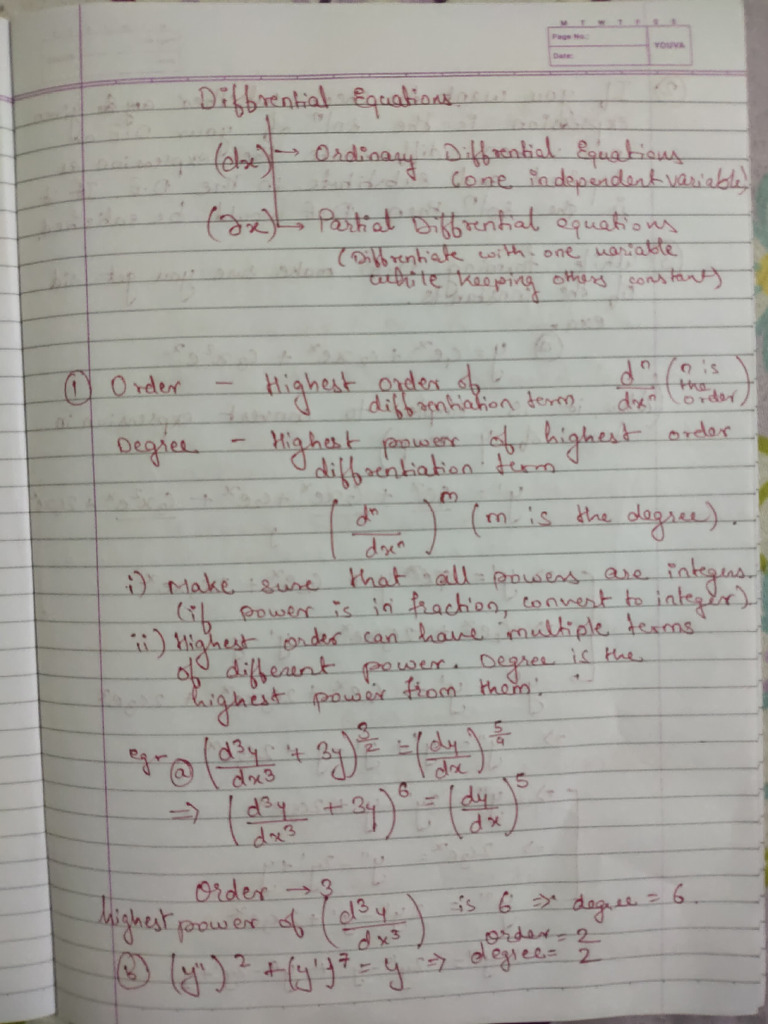 M T W T F S S
Page No.:
Date:
YOUVA
Diffrential Equations
(dx) → Ordinary Diffrential Equations
(one independent variable)
(∂x) → Partial Diffrential equations
(Diffrentiate with one variable
while keeping others constant)
① Order - Highest order of dⁿ/dxⁿ (n is the order)
diffrentiation term
Degree - Highest power of highest order
diffrentiation term
(dⁿ/dxⁿ)ᵐ (m is the degree).
i) Make sure that all powers are integers
(if power is in fraction, convert to integer)
ii) Highest order can have multiple terms
of different power. Degree is the
highest power from them.
eg:- ⓐ (d³y/dx³ + 3y)^3/2 = (dy/dx)^5/4
⇒ (d³y/dx³ + 3y)⁶ = (dy/dx)⁵
Order → 3
highest power of (d³y/dx³) is 6 ⇒ degree = 6.
ⓑ (y'')² + (y')⁷ = y ⇒ order = 2
degree = 2